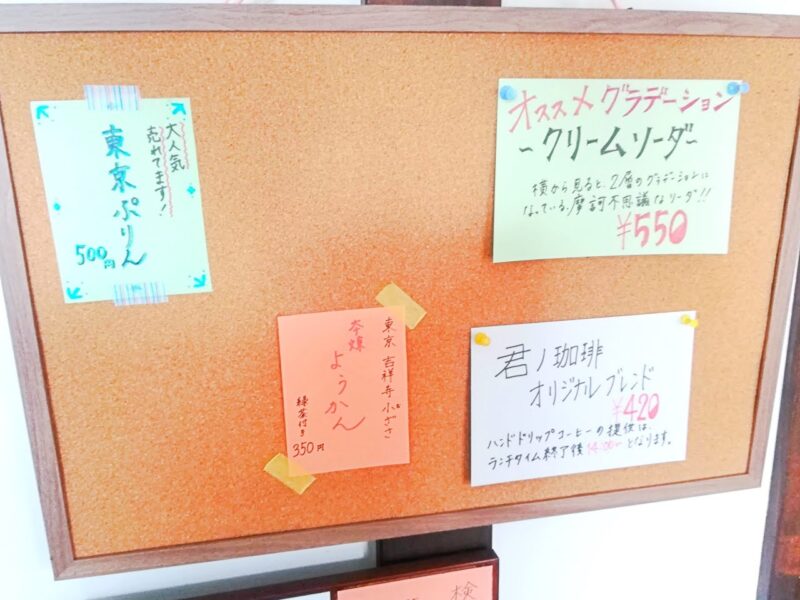 大人気
売れてます!
東京ぷりん
500円
オススメ グラデーション
~クリームソーダ~
横から見ると、2層のグラデーションに
なっている、摩訶不思議なソーダ!!
¥550
東京 吉祥寺 小ざさ
本煉
ようかん
緑茶付き
350円
君ノ珈琲
オリジナルブレンド
¥420
ハンドドリップコーヒーの提供は、
ランチタイム終了後14:00〜となります。
検